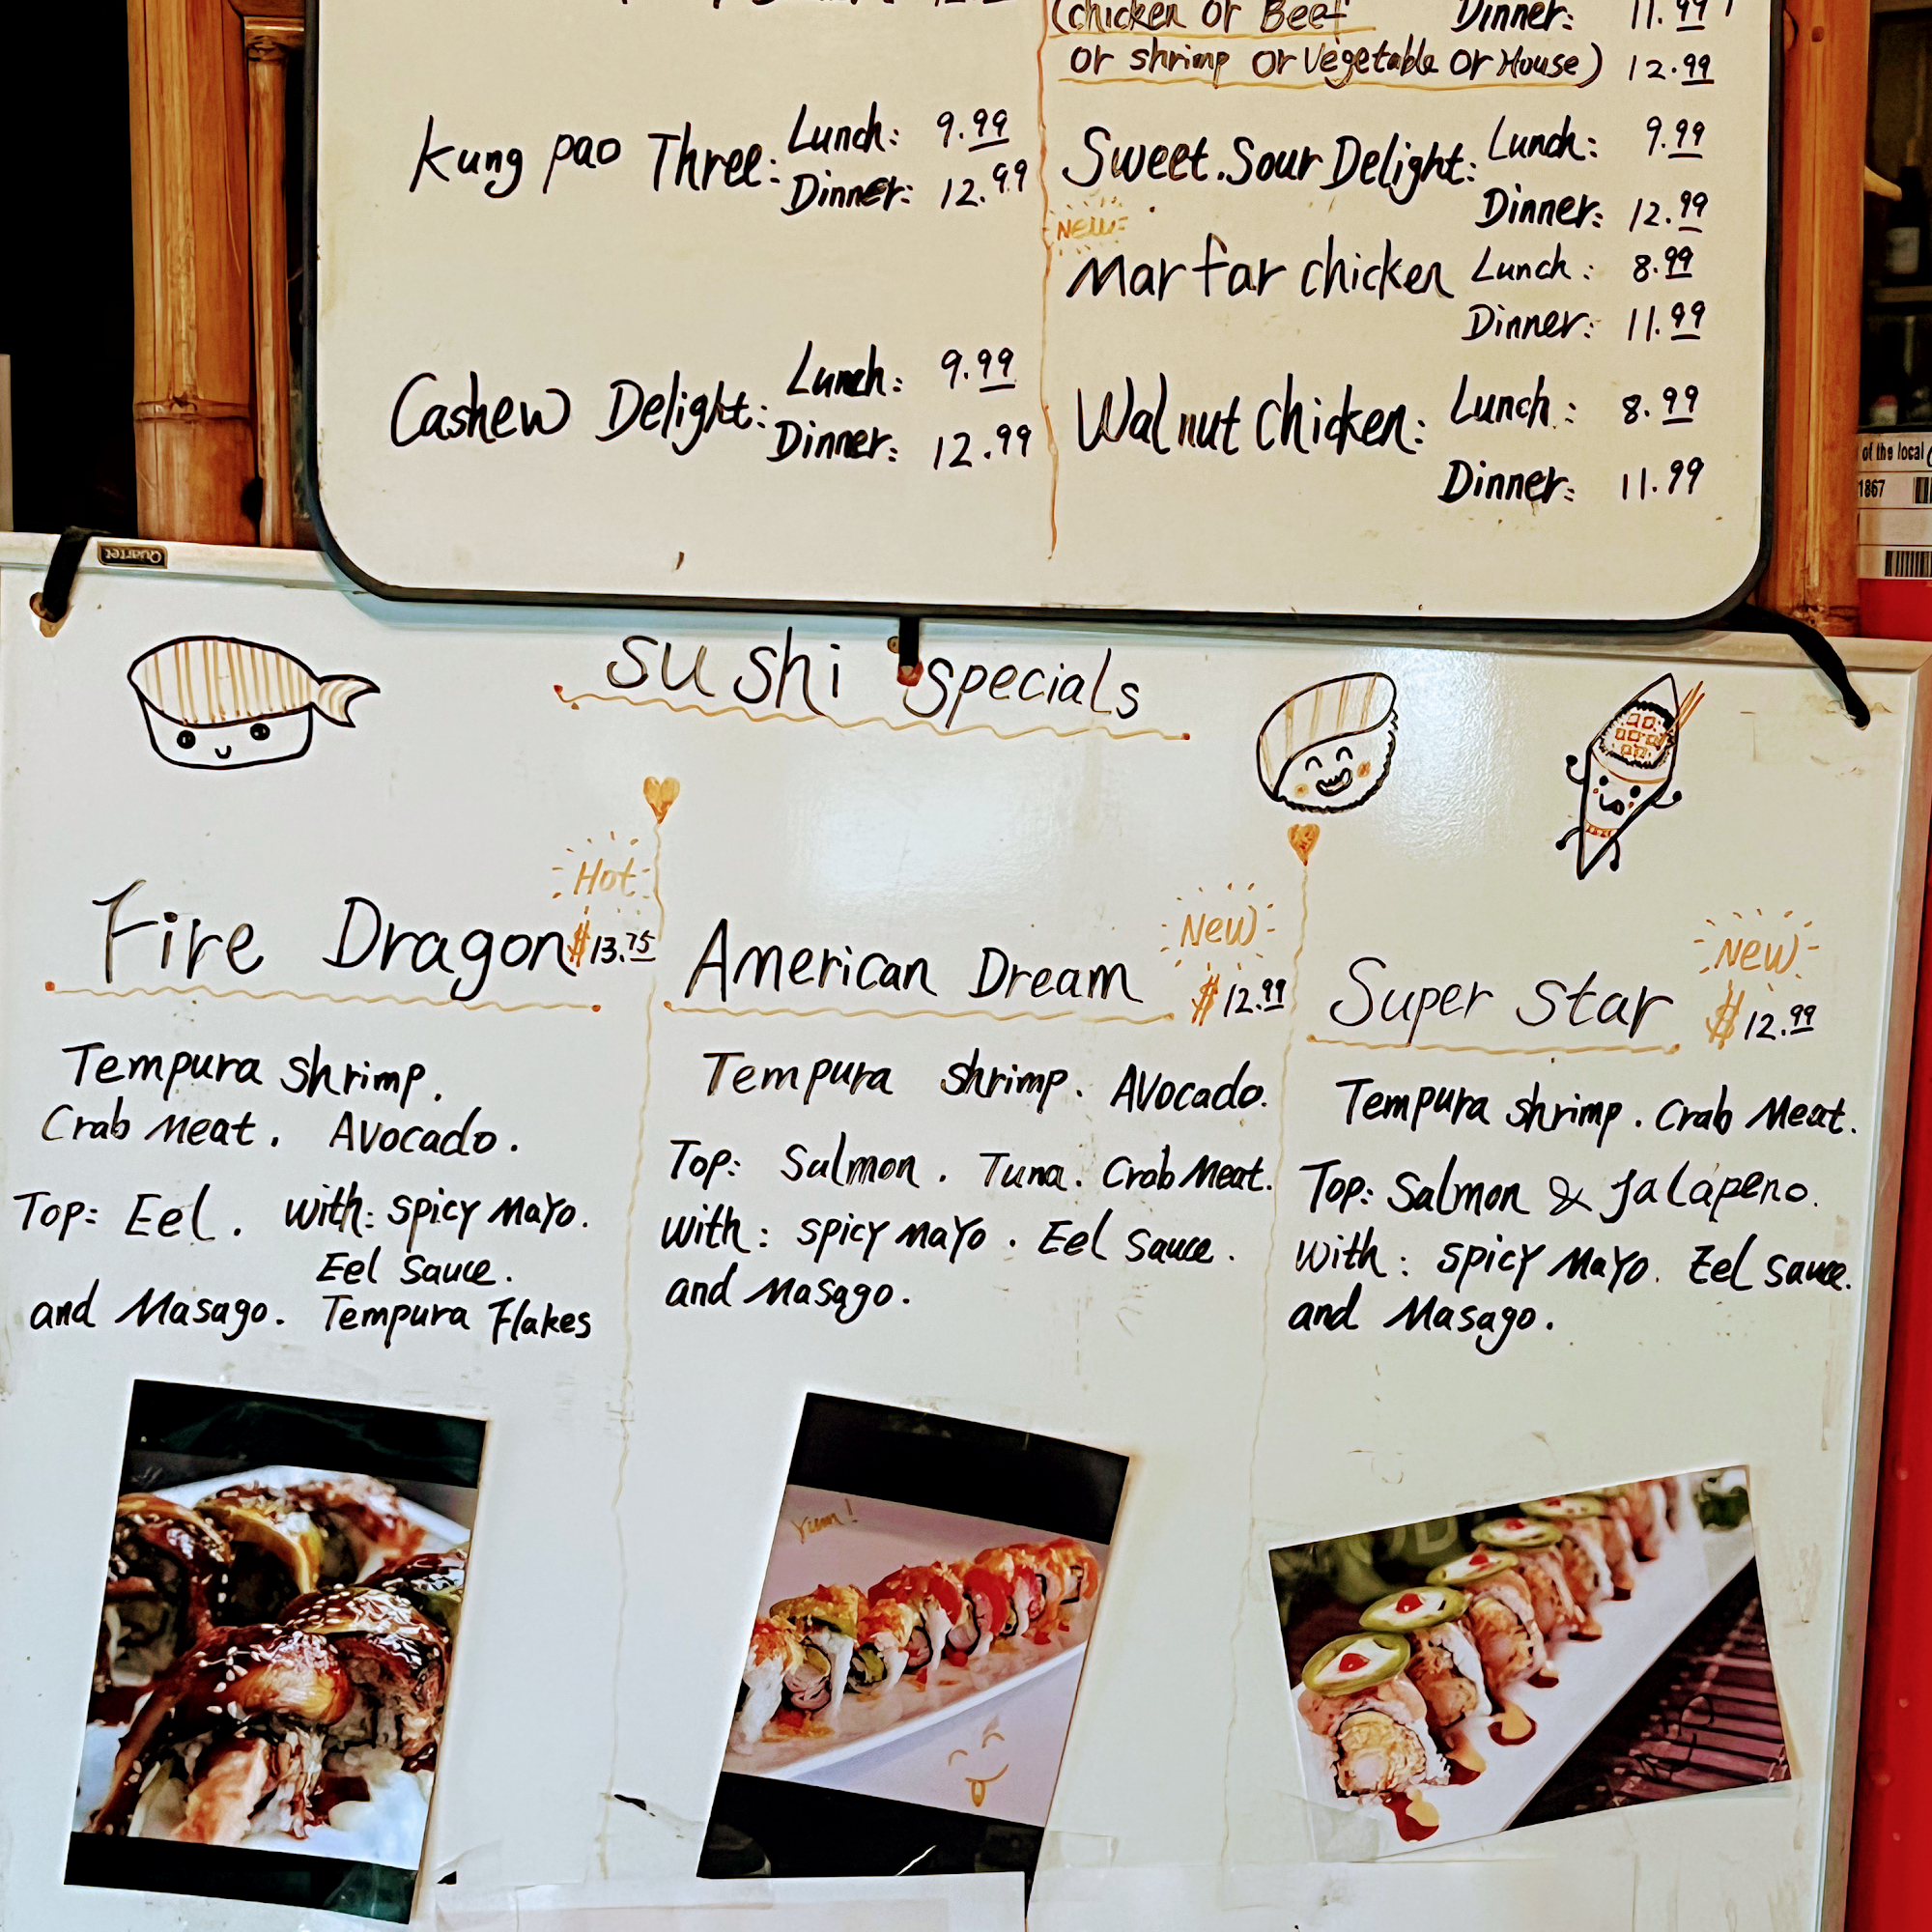 (chicken or Beef Dinner: 11.99
or shrimp or Vegetable or House) 12.99
Kung pao Three: Lunch: 9.99
Dinner: 12.99
Cashew Delight: Lunch: 9.99
Dinner: 12.99
Sweet.Sour Delight: Lunch: 9.99
Dinner: 12.99
New
Mar far chicken Lunch: 8.99
Dinner: 11.99
Walnut chicken: Lunch: 8.99
Dinner: 11.99
of the local
1867
Quartet
sushi specials
Hot
Fire Dragon $13.75
Tempura shrimp.
Crab Meat. Avocado.
Top: Eel. with: spicy Mayo.
Eel sauce.
and Masago. Tempura Flakes
New
American Dream $12.99
Tempura shrimp. Avocado.
Top: Salmon. Tuna. Crab Meat.
with: spicy mayo. Eel sauce.
and Masago.
Yum!
New
Super Star $12.99
Tempura shrimp. Crab Meat.
Top: Salmon & Jalapeno.
with: spicy Mayo. Eel sauce.
and Masago.